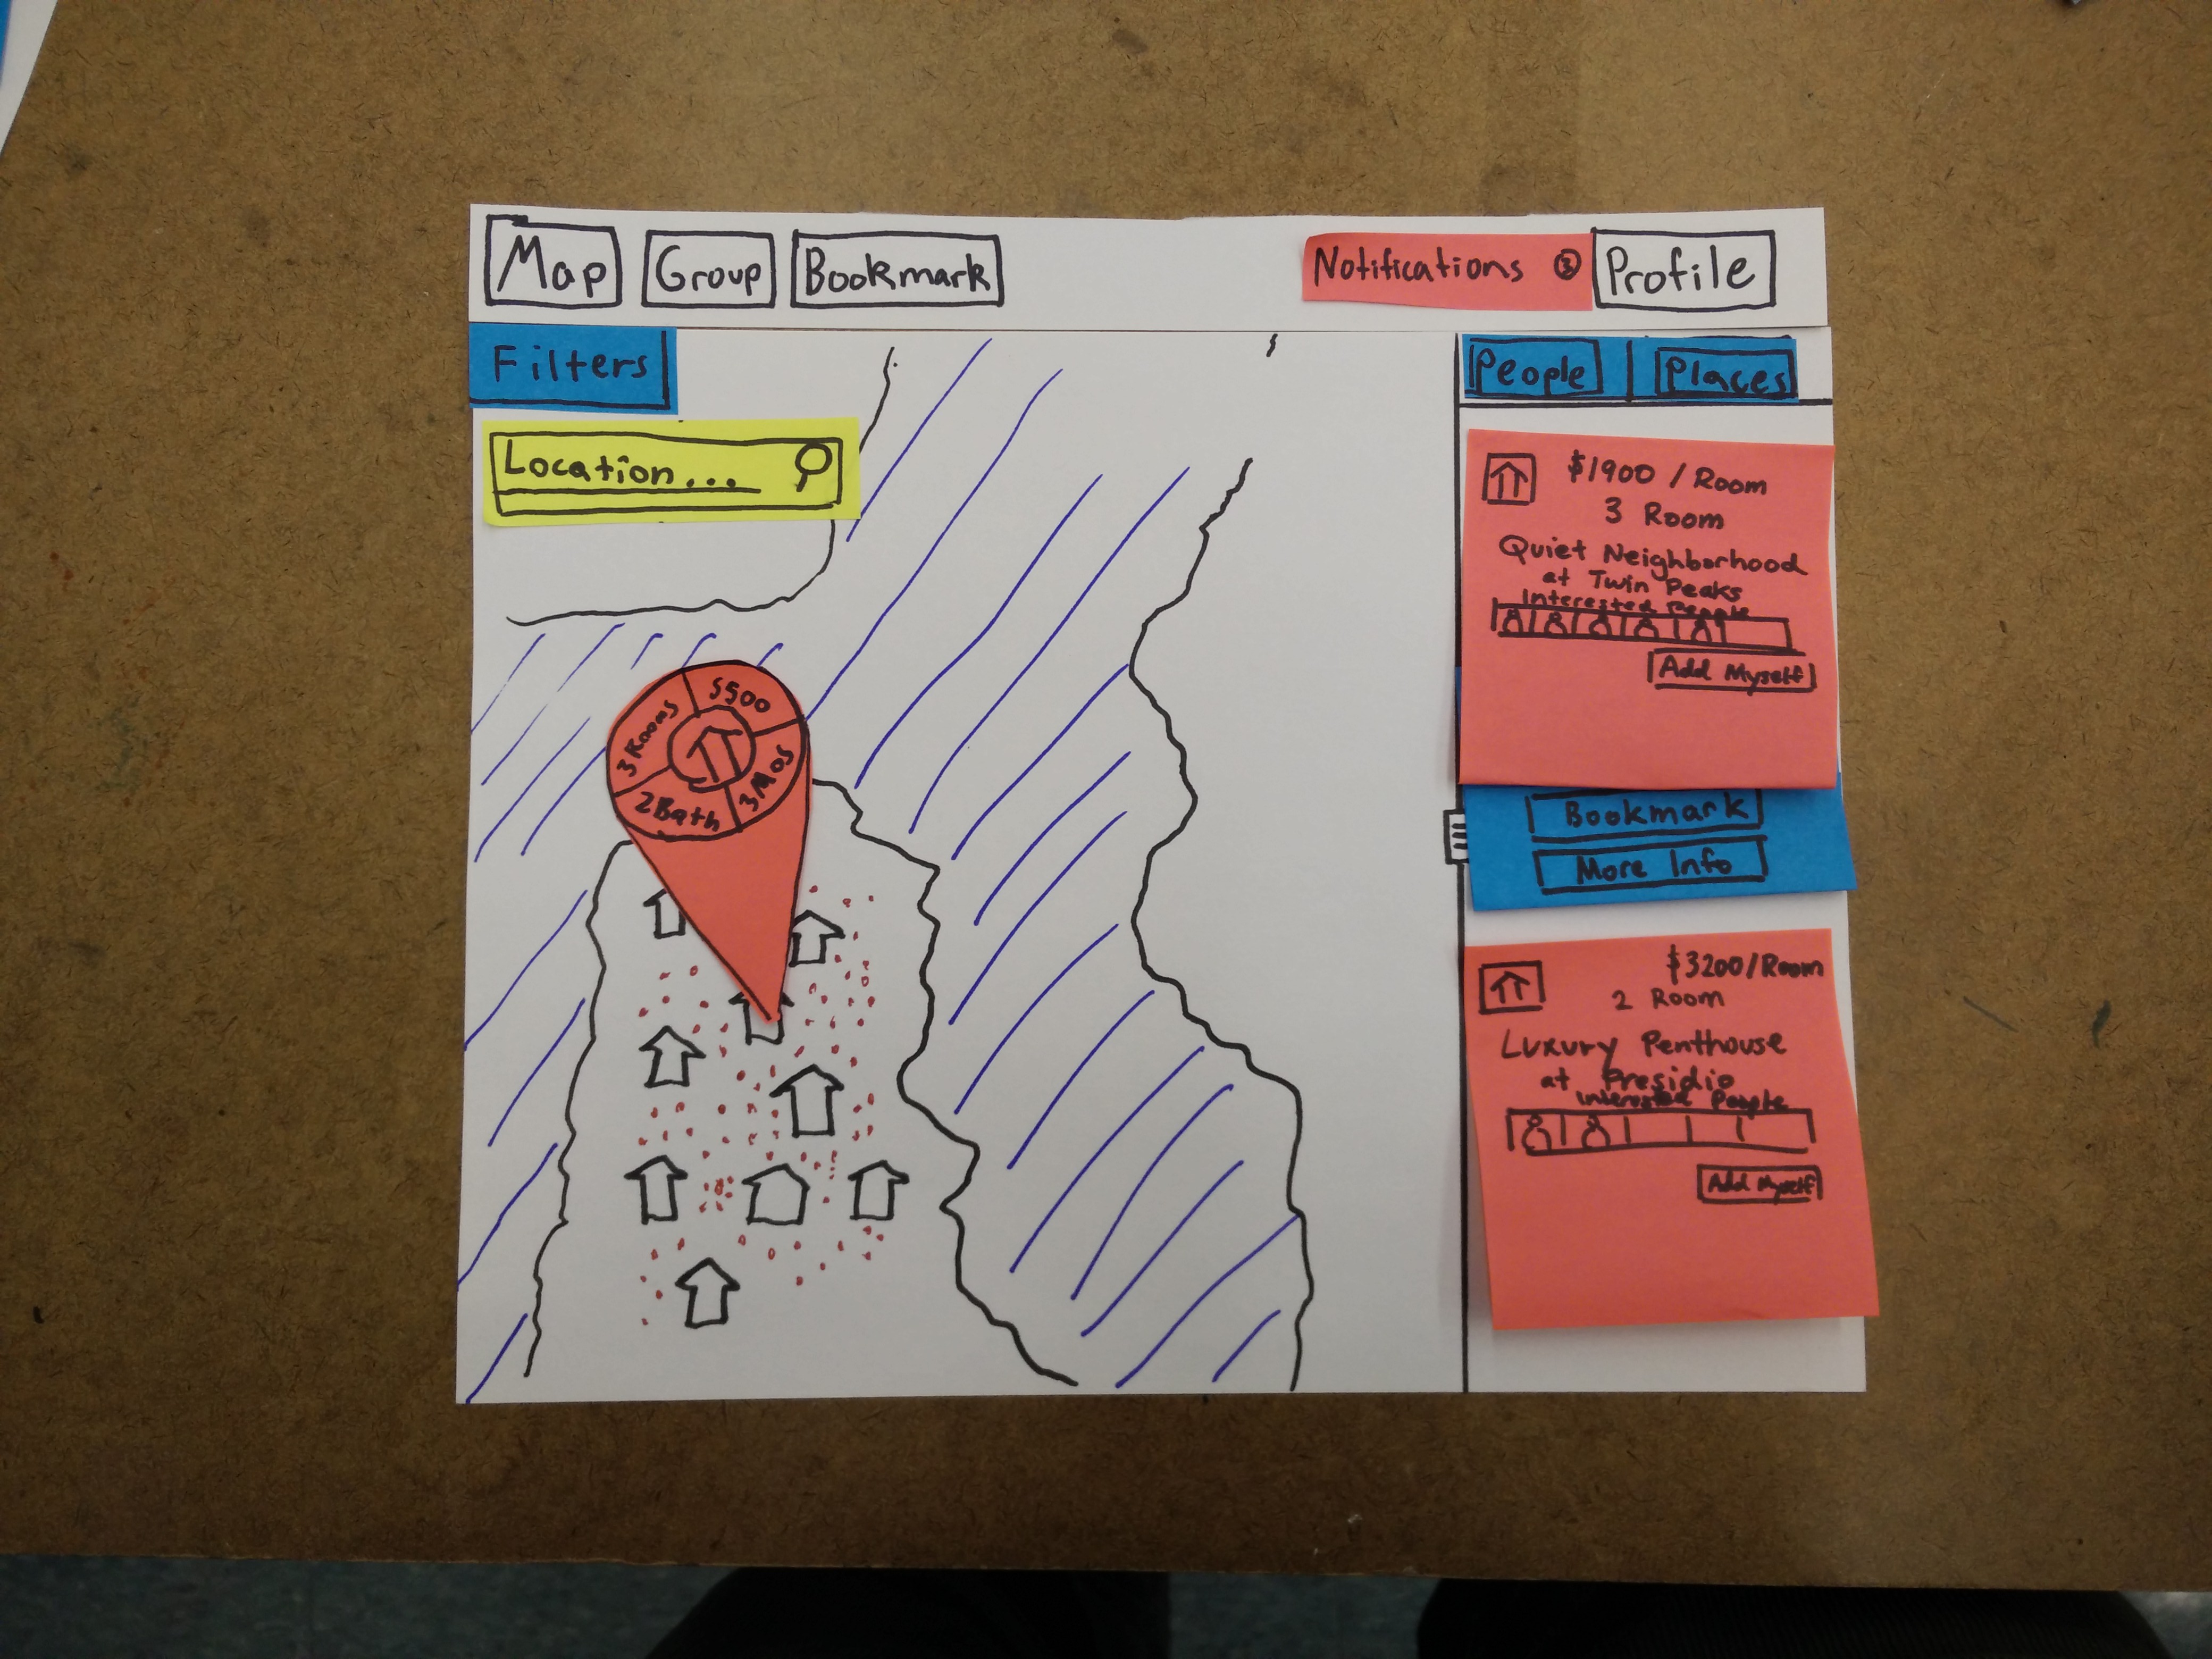 Map Group Bookmark Notifications 3 Profile
Filters
Location...
People Places
$1900 / Room
3 Room
Quiet Neighborhood
at Twin Peaks
Interested People
Add Myself
Bookmark
More Info
$3200/Room
2 Room
Luxury Penthouse
at Presidio
Interested People
Add Myself
$500
3 Mos
2 Bath
3 Rooms